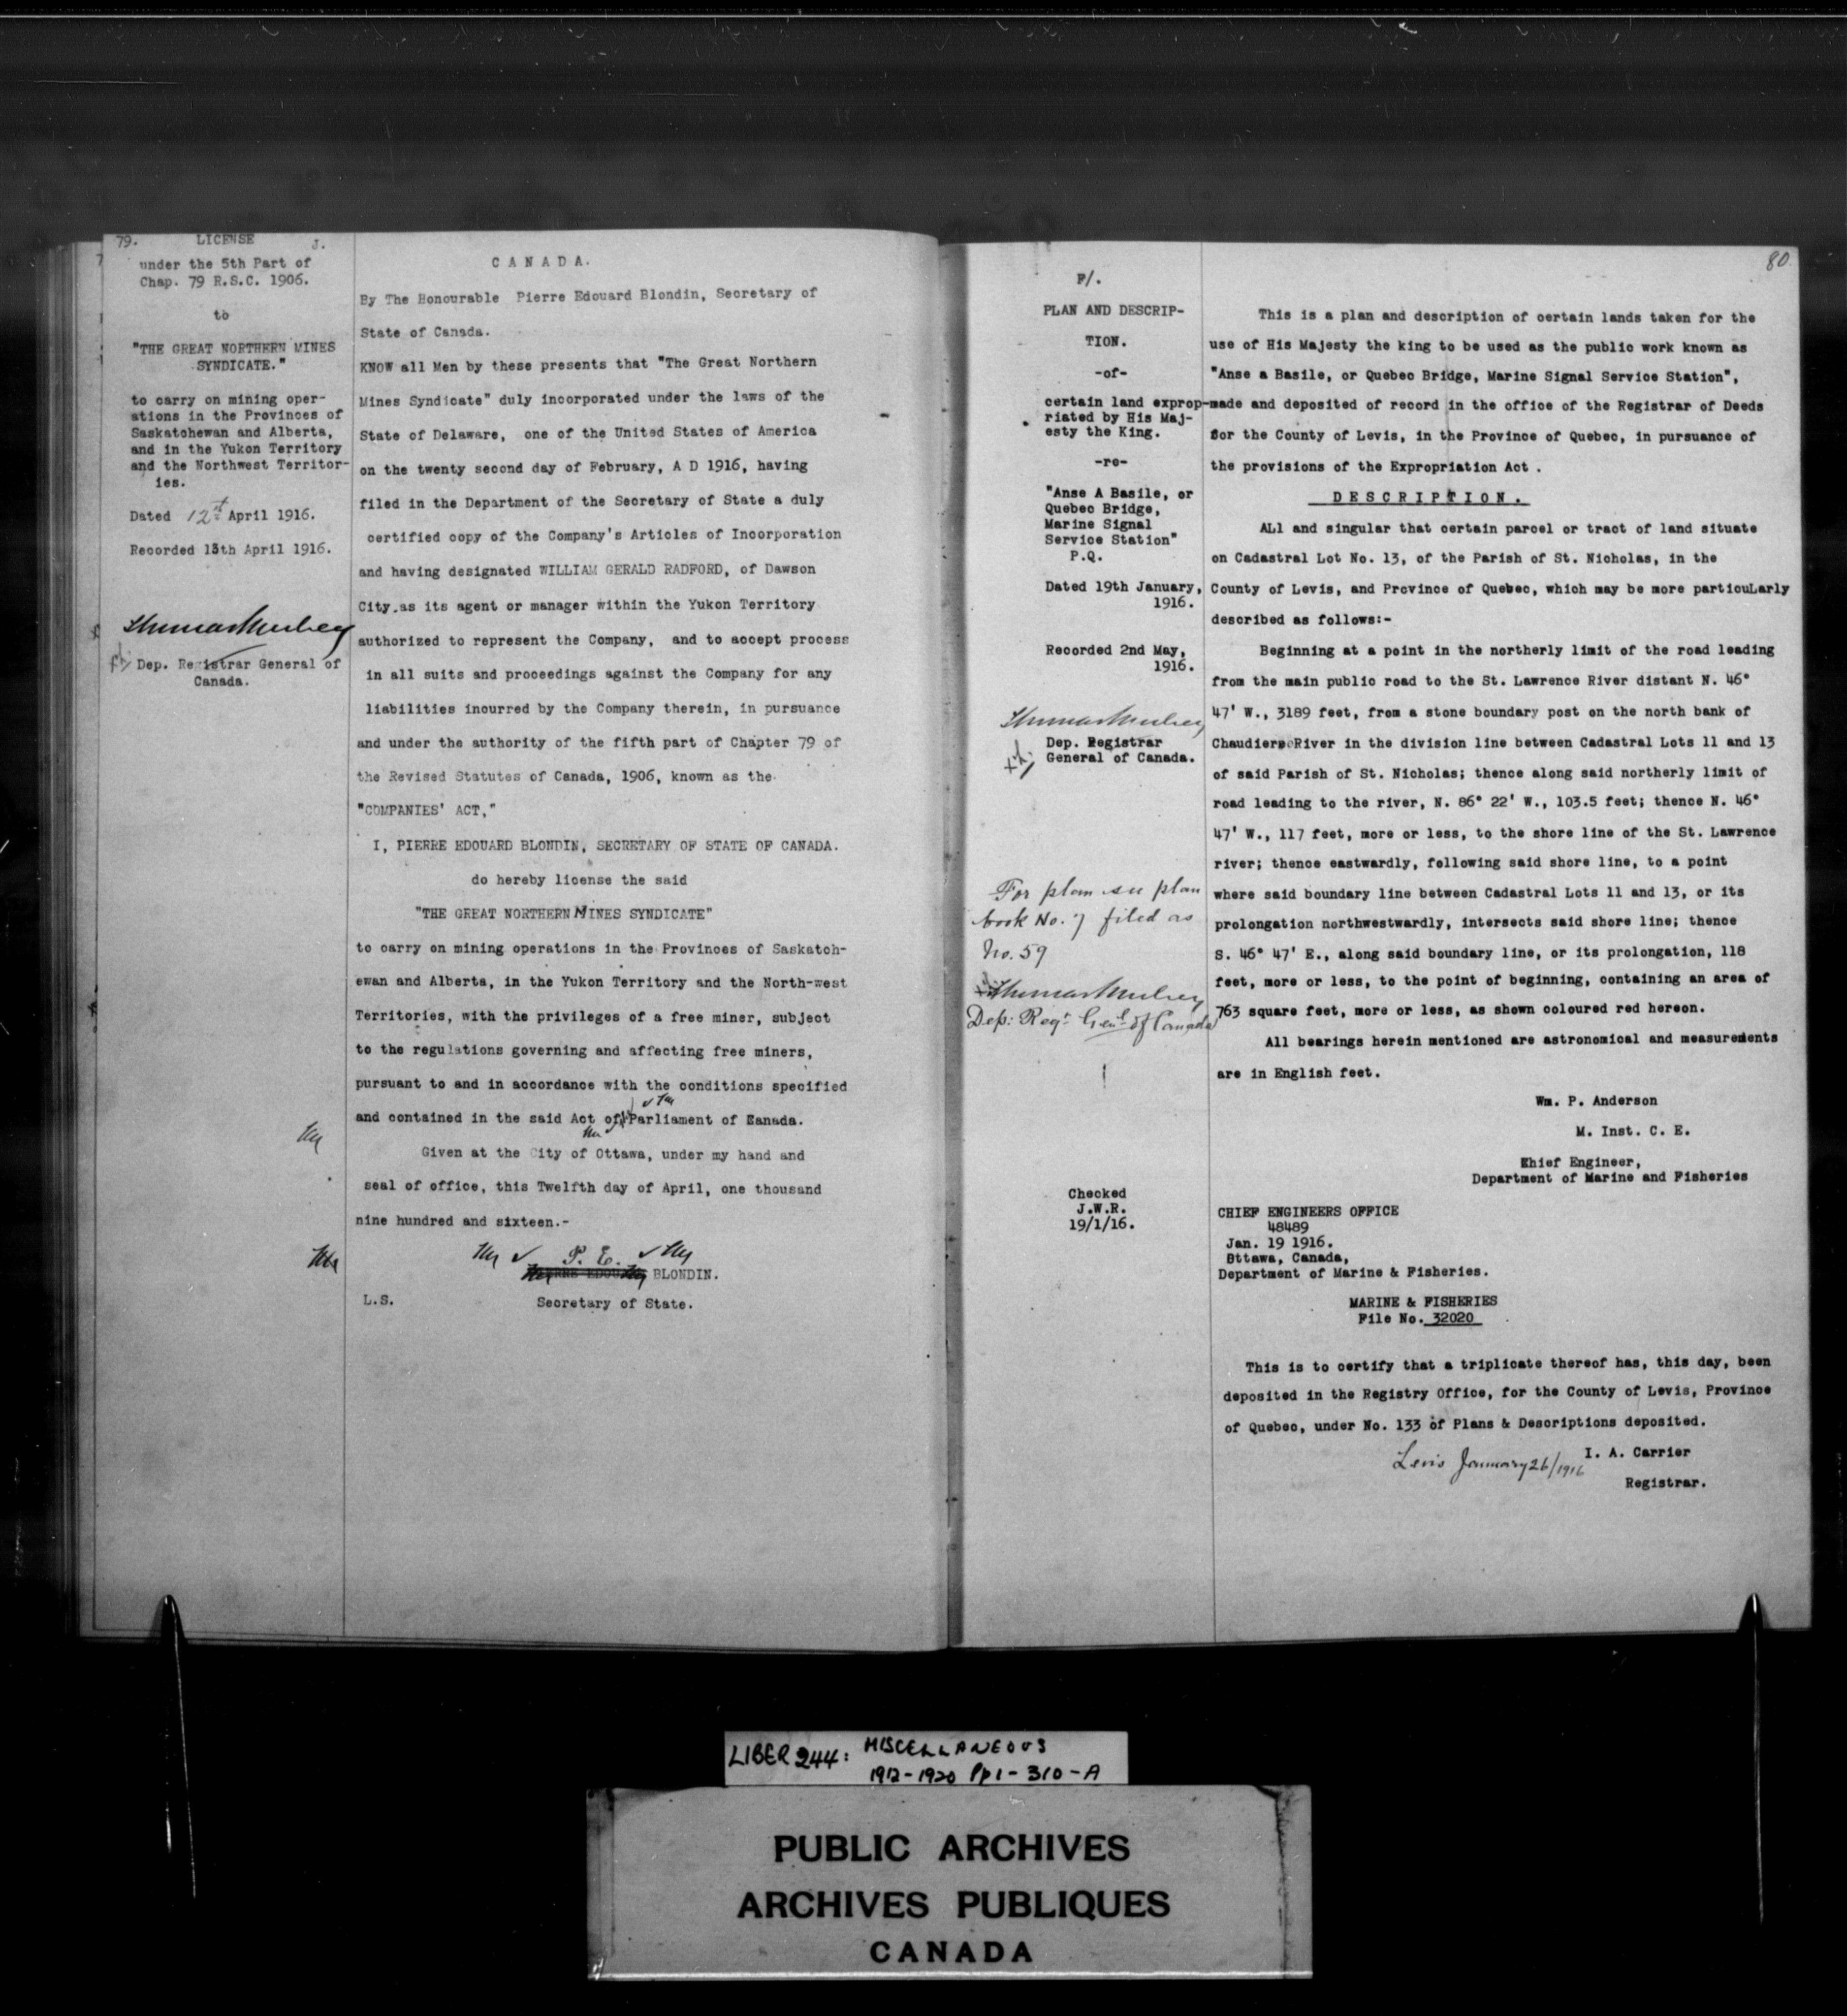 79. LICENSE J.
under the 5th Part of
Chap. 79 R.S.C. 1906.
to
"THE GREAT NORTHERN MINES
SYNDICATE."
to carry on mining oper-
ations in the Provinces of
Saskatchewan and Alberta,
and in the Yukon Territory
and the Northwest Territor-
ies.
Dated 12th April 1916.
Recorded 13th April 1916.
Thomas Mulvey
Dep. Registrar General of
Canada.
CANADA.
By The Honourable Pierre Edouard Blondin, Secretary of
State of Canada.
KNOW all Men by these presents that "The Great Northern
Mines Syndicate" duly incorporated under the laws of the
State of Delaware, one of the United States of America
on the twenty second day of February, A D 1916, having
filed in the Department of the Secretary of State a duly
certified copy of the Company's Articles of Incorporation
and having designated WILLIAM GERALD RADFORD, of Dawson
City.as its agent or manager within the Yukon Territory
authorized to represent the Company, and to accept process
in all suits and proceedings against the Company for any
liabilities incurred by the Company therein, in pursuance
and under the authority of the fifth part of Chapter 79 of
the Revised Statutes of Canada, 1906, known as the
"COMPANIES' ACT,"
I, PIERRE EDOUARD BLONDIN, SECRETARY OF STATE OF CANADA.
do hereby license the said
"THE GREAT NORTHERN MINES SYNDICATE"
to carry on mining operations in the Provinces of Saskatch-
ewan and Alberta, in the Yukon Territory and the North-west
Territories, with the privileges of a free miner, subject
to the regulations governing and affecting free miners,
pursuant to and in accordance with the conditions specified
and contained in the said Act of Parliament of Canada.
Given at the City of Ottawa, under my hand and
seal of office, this Twelfth day of April, one thousand
nine hundred and sixteen.-
P. E.
BLONDIN.
L.S. Secretary of State.
80.
F/.
PLAN AND DESCRIP-
TION.
-of-
certain land exprop-
riated by His Maj-
esty the King.
-re-
"Anse A Basile, or
Quebec Bridge,
Marine Signal
Service Station"
P.Q.
Dated 19th January,
1916.
Recorded 2nd May,
1916.
Thomas Mulvey
Dep. Registrar
General of Canada.
For plan see plan
book No. 7 filed as
No. 59
Thomas Mulvey
Dep: Regr Genl of Canada
Checked
J.W.R.
19/1/16.
This is a plan and description of certain lands taken for the
use of His Majesty the king to be used as the public work known as
"Anse a Basile, or Quebec Bridge, Marine Signal Service Station",
made and deposited of record in the office of the Registrar of Deeds
for the County of Levis, in the Province of Quebec, in pursuance of
the provisions of the Expropriation Act .
DESCRIPTION.
ALl and singular that certain parcel or tract of land situate
on Cadastral Lot No. 13, of the Parish of St. Nicholas, in the
County of Levis, and Province of Quebec, which may be more particuLarly
described as follows:-
Beginning at a point in the northerly limit of the road leading
from the main public road to the St. Lawrence River distant N. 46°
47' W., 3189 feet, from a stone boundary post on the north bank of
Chaudiere River in the division line between Cadastral Lots 11 and 13
of said Parish of St. Nicholas; thence along said northerly limit of
road leading to the river, N. 86° 22' W., 103.5 feet; thence N. 46°
47' W., 117 feet, more or less, to the shore line of the St. Lawrence
river; thence eastwardly, following said shore line, to a point
where said boundary line between Cadastral Lots 11 and 13, or its
prolongation northwestwardly, intersects said shore line; thence
S. 46° 47' E., along said boundary line, or its prolongation, 118
feet, more or less, to the point of beginning, containing an area of
763 square feet, more or less, as shown coloured red hereon.
All bearings herein mentioned are astronomical and measurements
are in English feet.
Wm. P. Anderson
M. Inst. C. E.
Chief Engineer,
Department of Marine and Fisheries
CHIEF ENGINEERS OFFICE
48489
Jan. 19 1916.
Ottawa, Canada,
Department of Marine & Fisheries.
MARINE & FISHERIES
File No. 32020
This is to certify that a triplicate thereof has, this day, been
deposited in the Registry Office, for the County of Levis, Province
of Quebec, under No. 133 of Plans & Descriptions deposited.
I. A. Carrier
Levis January 26/1916
Registrar.
LIBER 244: MISCELLANEOUS
1912-1920 Pp 1-310-A
PUBLIC ARCHIVES
ARCHIVES PUBLIQUES
CANADA